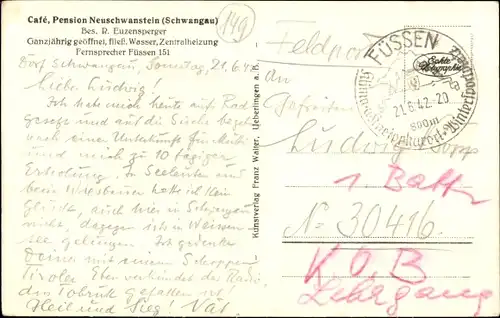 Café, Pension Neuschwanstein (Schwangau)
Bes. R. Euzensperger
Ganzjährig geöffnet, fließ. Wasser, Zentralheizung
Fernsprecher Füssen 151
149
Dorf Schwangau, Sonntag, 21.6.42
Lieber Ludwig!
Ich habe mich heute aufs Rad
gesetzt und auf die Suche begeben
nach einer Unterkunft für
und mich zu 10 tägiger
Erholung. In Seeleuten und
beim Wiesbauer hatte ich kein
Glück, auch hier in Schwangau
nicht, dagegen ist in Weissen-
see gelungen. Ich gedenke
Deiner mit einem Schoppen
Tiroler. Eben verkündet der Radio,
dis Tobruk gefallen ist.
Heil und Sieg! Vat.
Kunstverlag Franz Walter, Ueberlingen a. B.
Feldpost
FÜSSEN
21.6.42.-20
800m
Echte Photographie
An
Gefreiten
Ludwig
1. Batt
No 30416
K.O.B
Lehrgang